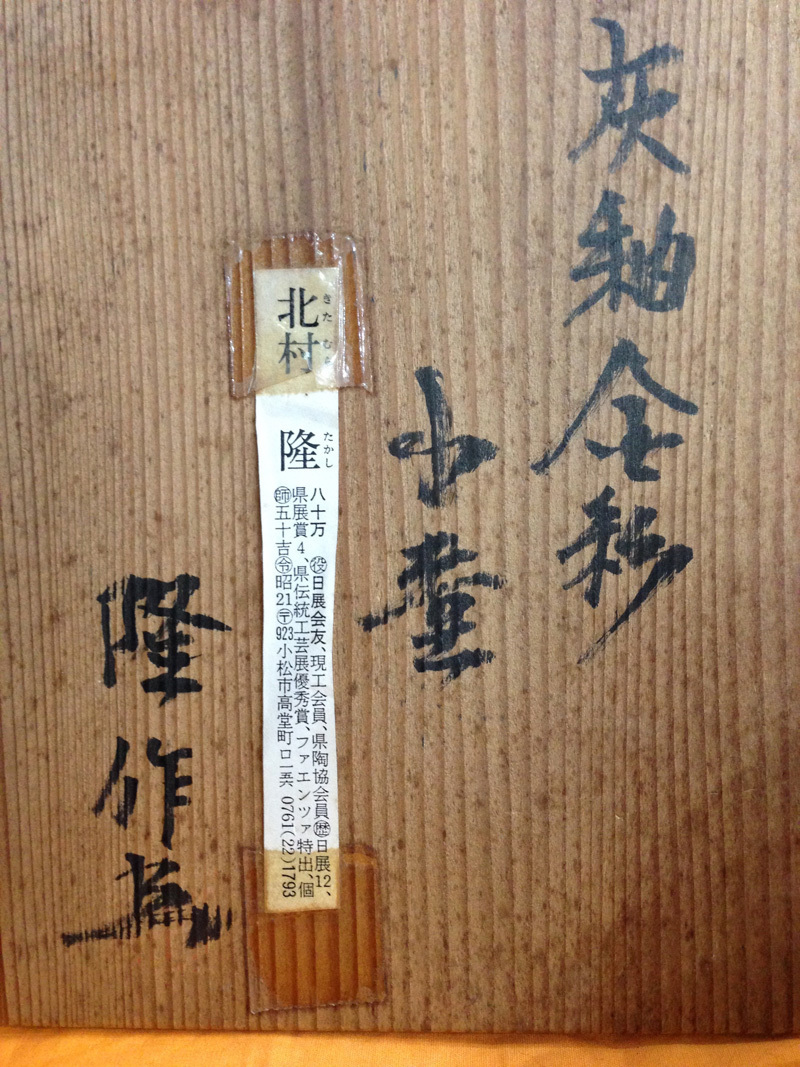 灰釉金彩
小壷
北村 隆
きたむら たかし
八十万 ㊝日展会友、現工会員、県陶協会員㊭日展12、
県展賞4、県伝統工芸展優秀賞、ファエンツァ特出、個
師五十吉令昭21〒923小松市高堂町ロ一 0761(22)1793
隆作